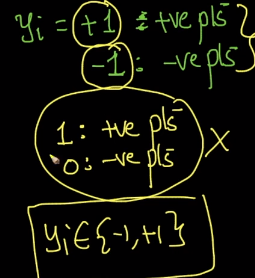 yi = +1 : +ve pts
-1 : -ve pts
1 : +ve pts
0 : -ve pts
X
yi ∈ {-1, +1}